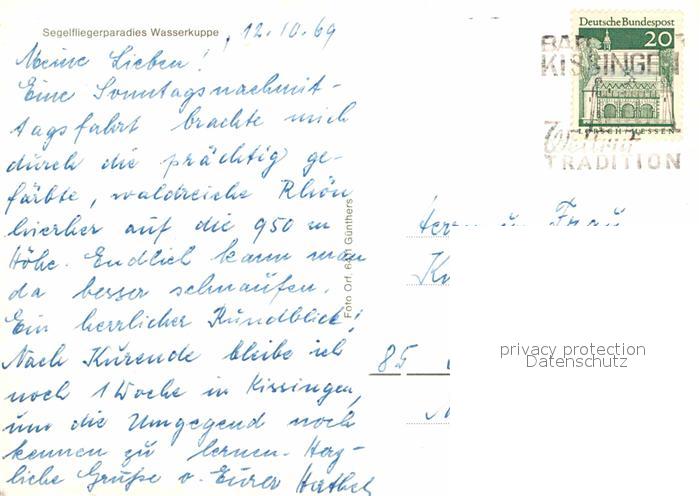 Segelfliegerparadies Wasserkuppe, 12.10.69
Meine Lieben!
Eine Sonntagsnachmit-
tagsfahrt brachte mich
durch die prächtig ge-
färbte, waldreiche Rhön
hierher auf die 950 m
Höhe. Endlich kann man
da besser schnaufen.
Ein herrlicher Rundblick!
Nach Kurende bleibe ich
noch 1 Woche in Kissingen,
um die Umgegend noch
kennen zu lernen. Herz-
liche Grüße v. Eurer
Foto Orf, 6411 Günthers
Deutsche Bundespost
20
LORSCH/HESSEN
BAD
KISSINGEN
Weltruf
TRADITION
Herr u. Frau
85
privacy protection
Datenschutz